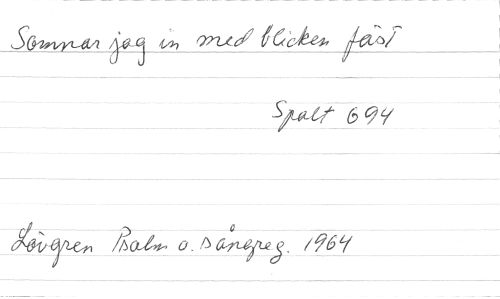 Somnar jag in med blicken fäst
Spalt 694
Lövgren Psalm o. sångreg. 1964